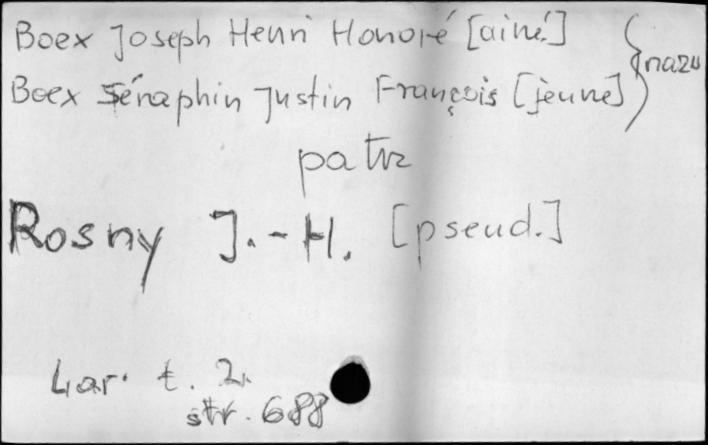 Boex Joseph Henri Honoré [ainé]
Boex Séraphin Justin François [jeune] } nazw
patrz
Rosny J.-H. [pseud.]
Lar. t. 2.
str. 688